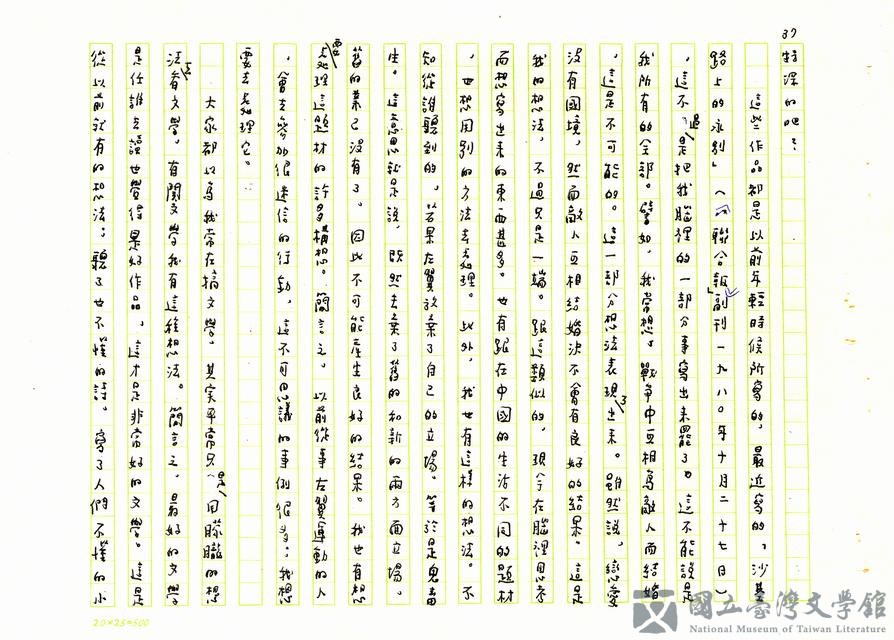 37
特深的吧?
這些作品都是以前年輕時候所寫的,最近寫的「沙基
路上的永別」(「聯合報」副刊一九八○年十月二十七日)
,這不過是把我腦裡的一部分事寫出來罷了。這不能說是
我所有的全部。譬如,我常想,戰爭中互相為敵人而結婚
,這是不可能的。這一部分想法表現出來。雖然說,戀愛
沒有國境,然而敵人互相結婚決不會有良好的結果。這是
我的想法,不過只是一端。跟這類似的,現今在腦裡思考
而想寫出來的東西甚多。也有跟在中國的生活不同的題材
,也想用別的方法去處理。此外,我也有這樣的想法。不
知從誰聽到的,若果左翼放棄了自己的立場。等於是兒畜
生。這意思就是說,既然去棄了舊的和新的兩方面立場。
舊的業已沒有了。因此不可能產生良好的結果。我也有想要
處理這題材的許多構想。簡言之。以前從事左翼運動的人
,會去參加很迷信的行動,這不可思議的事例很多;我想
要去處理它。
大家都以為我常在搞文學。其實平常只是用朦朧的想
法看文學。有關文學我有這種想法。簡言之,最好的文學
是任誰去讀也覺得是好作品,這才是非常好的文學。這是
從以前就有的想法;聽了也不懂的詩。寫了人們不懂的小
20×25=500
國立臺灣文學館
National Museum of Taiwan Literature